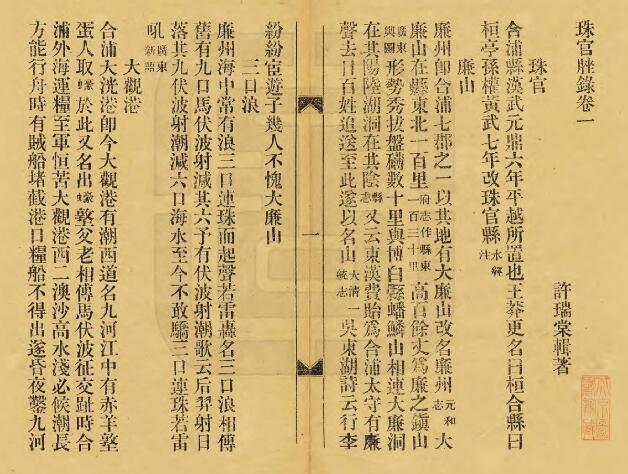 珠官脞錄卷一
許瑞棠輯著
珠官
合浦縣漢武元鼎六年平越所置也王莽更名曰桓合縣曰
桓亭孫權黃武七年改珠官縣水經注
廉山
廉州卽合浦七郡之一以其地有大廉山改名廉州元和志大
廉山在縣東北一百里府志作縣東一百三十里高百餘丈爲廉之鎭山
廣東輿圖形勢秀拔盤礴數十里與博白縣蟠鱗山相連大廉洞
在其陽陸湖洞在其陰縣志又云東漢費貽爲合浦太守有廉
聲去日百姓追送至此遂以名山大清一統志吳東湖詩云行李
紛紛宦遊子幾人不愧大廉山
三口浪
廉州海中常有浪三口連珠而起聲若雷轟名三口浪相傳
舊有九口馬伏波射減其六予有伏波射潮歌云后羿射日
落其九伏波射潮減六口海水至今不敢驕三口連珠若雷
吼廣東新語
大觀港
合浦大洸港卽今大觀港有潮西道名九河江中有赤羊墩
蛋人取蠔於此又名出蠔墩父老相傳馬伏波征交趾時合
浦外海運糧至軍恒苦大觀港西二澳沙高水淺必候潮長
方能行舟時有賊船堵截港口糧船不得出遂昏夜鑿九河
一